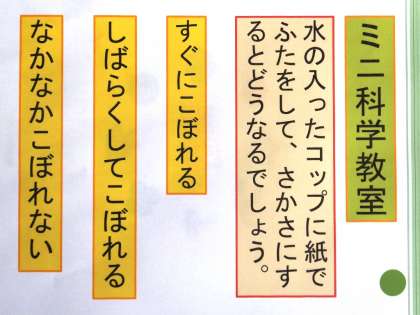 ミニ科学教室
水の入ったコップに紙で
ふたをして、さかさにす
るとどうなるでしょう。
すぐにこぼれる
しばらくしてこぼれる
なかなかこぼれない